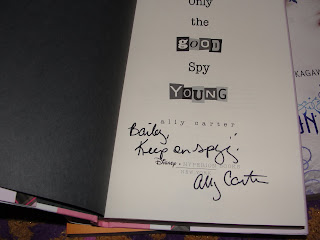 Only
the
GOOD
Spy
YOUNG
ally carter
Bailey,
Keep on spying!
DISNEY • HYPERION BOOKS
NEW YORK
Ally Carter
KAGAW